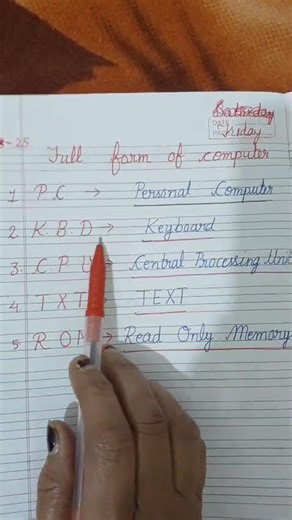 Saturday
DATE
Friday
-25
Full form of computer
1. P.C → Personal Computer
2. K.B.D → Keyboard
3. C P U → Central Processing Unit
4. T X T → TEXT
5. R O M → Read Only Memory